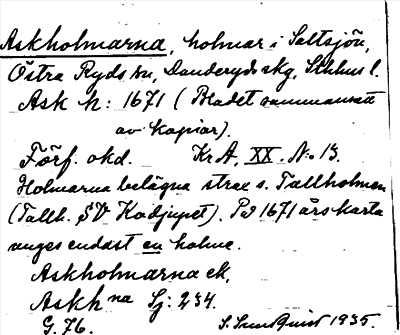 Askholmarna, holmar i Saltsjön,
Östra Ryds sn, Danderyds skg, Sthlms l.
Ask h: 1671 (Bladet sammansatt
av kopior).
Förf. okd. Kr A, XX. No 13.
Holmarna belägna strax s. Tallholmen
(Tallh. SV Kodjupet). På 1671 års karta
anges endast en holme.
Askholmarna ek.
Askh na Sj: 234.
G. 76. S. Sundquist 1935.